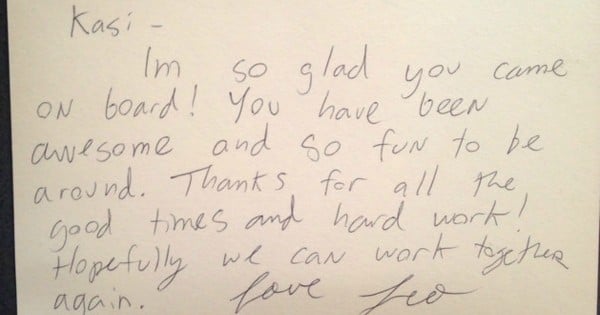 Kasi -
Im so glad you came
on board! You have been
awesome and so fun to be
around. Thanks for all the
good times and hard work!
Hopefully we can work together
again. Love Leo